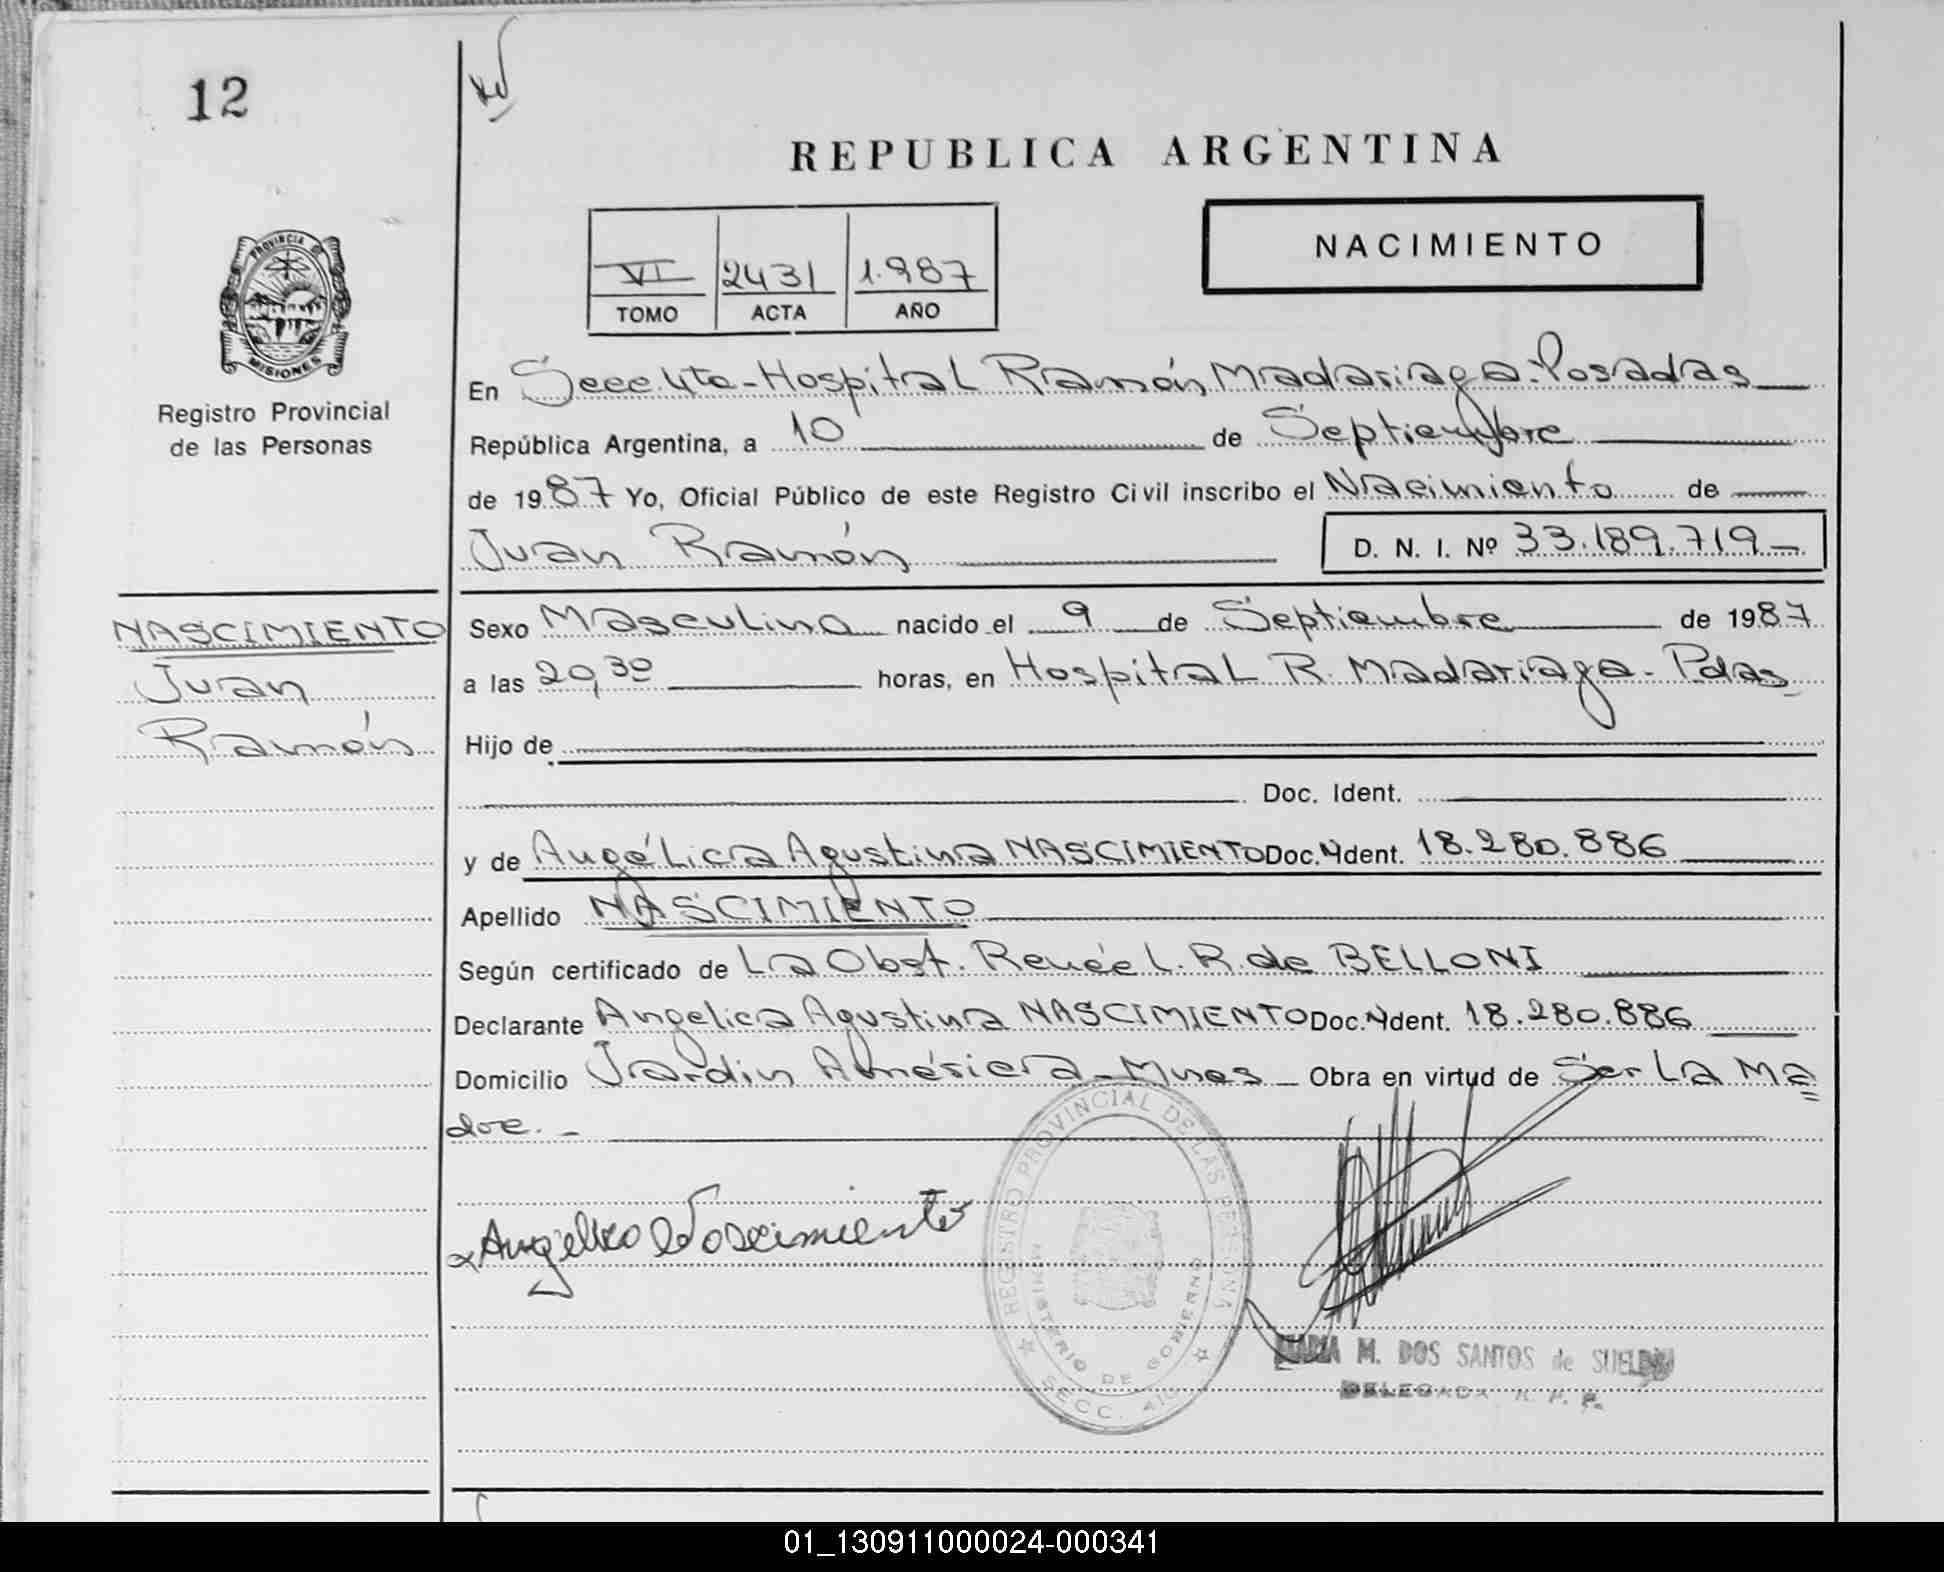 12
REPUBLICA ARGENTINA
NACIMIENTO
VI 2431 1.987
TOMO ACTA AÑO
PROVINCIA DE
MISIONES
Registro Provincial
de las Personas
En Secc. 4ta - Hospital Ramón Madariaga - Posadas
República Argentina, a 10 de Septiembre
de 1987 Yo, Oficial Público de este Registro Civil inscribo el Nacimiento de
Juan Ramón D. N. I. Nº 33.189.719 -
NASCIMIENTO
Juan
Ramón
Sexo Masculino nacido el 9 de Septiembre de 1987
a las 20,30 horas, en Hospital R. Madariaga - Pdas
Hijo de
Doc. Ident.
y de Angélica Agustina NASCIMIENTO Doc. Ident. 18.280.886
Apellido NASCIMIENTO
Según certificado de La Obst. Renée L. R. de BELLONI
Declarante Angelica Agustina NASCIMIENTO Doc. Ident. 18.280.886
Domicilio Jardin América - Mnes - Obra en virtud de Ser La Ma
dre. -
Angelica Nascimiento
REGISTRO PROVINCIAL DE LAS PERSONAS
MINISTERIO DE GOBIERNO
SECC. 4ta
MARIA M. DOS SANTOS de SUELDO
DELEGADA R. P. P.
01_130911000024-000341